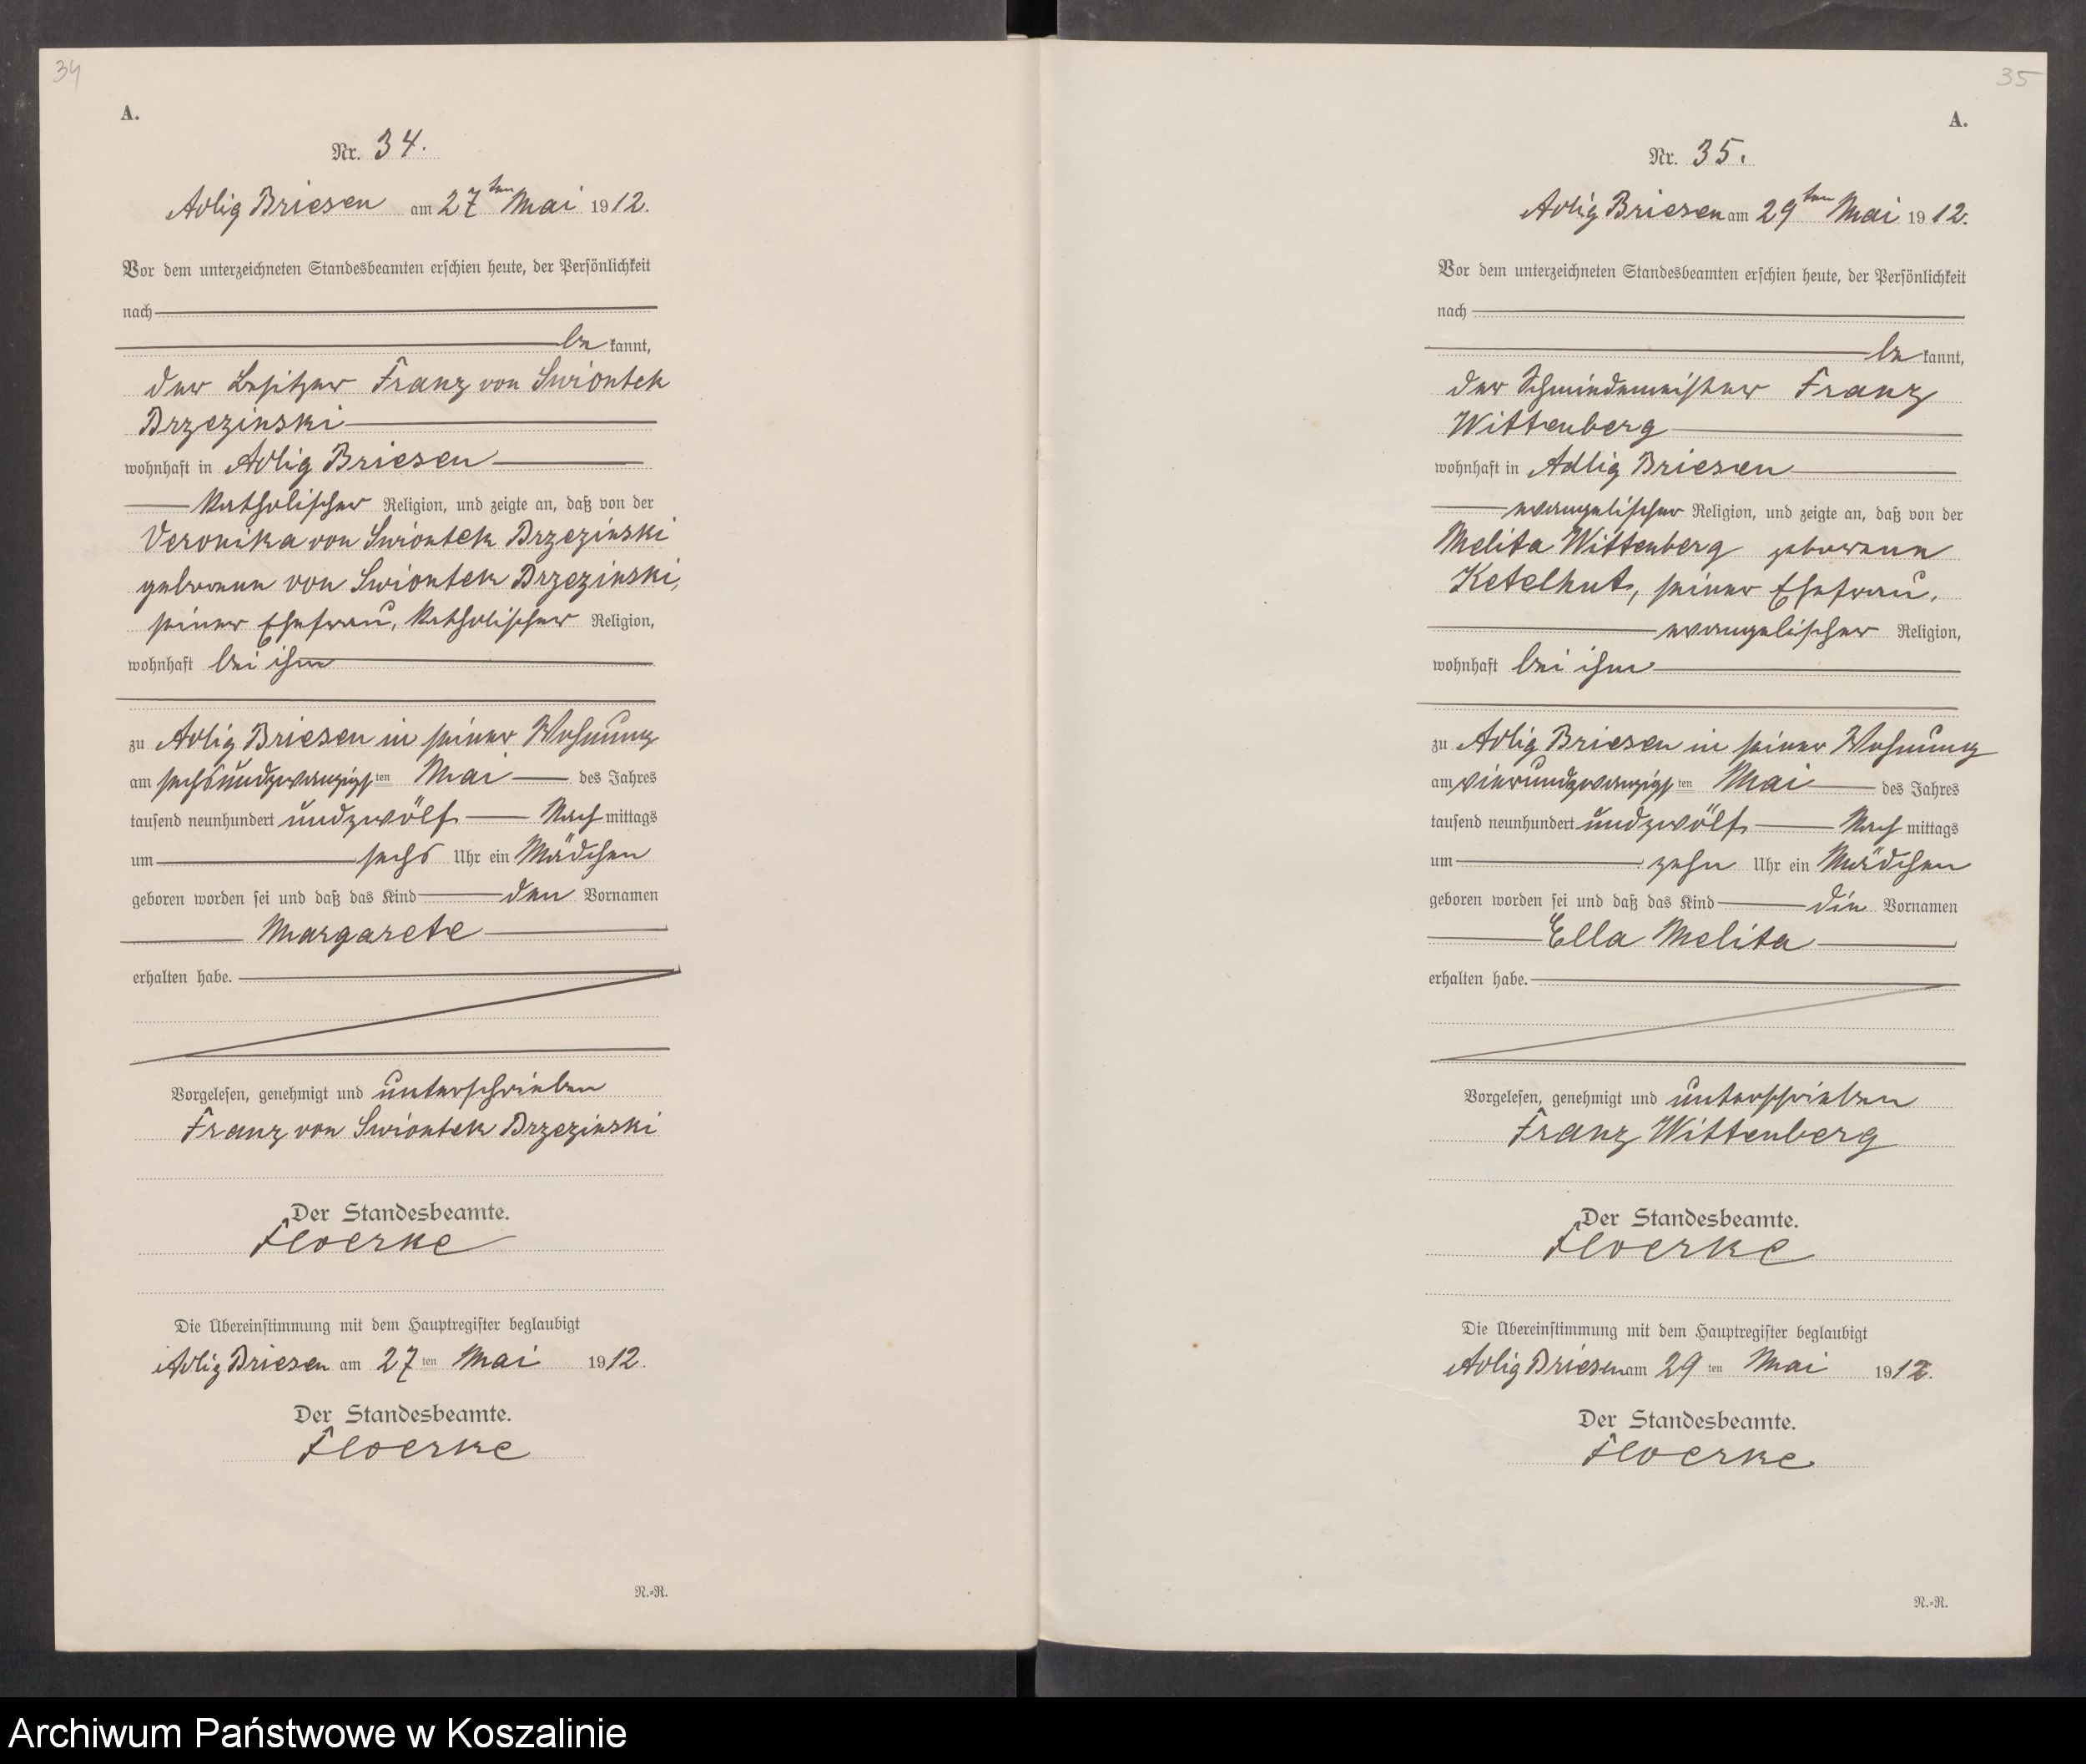 34
A.
Nr. 34.
Adlig Briesen am 27ten Mai 1912.
Vor dem unterzeichneten Standesbeamten erschien heute, der Persönlichkeit
nach
be kannt,
der Besitzer Franz von Swiontek
Brzezinski
wohnhaft in Adlig Briesen
katholischer Religion, und zeigte an, daß von der
Veronika von Swiontek Brzezinski
geborenen von Swiontek Brzezinski,
seiner Ehefrau, katholischer Religion,
wohnhaft bei ihm
zu Adlig Briesen in seiner Wohnung
am sechsundzwanzigsten Mai des Jahres
tausend neunhundert undzwölf Nachmittags
um sechs Uhr ein Mädchen
geboren worden sei und daß das Kind den Vornamen
Margarete
erhalten habe.
Vorgelesen, genehmigt und unterschrieben
Franz von Swiontek Brzezinski
Der Standesbeamte.
Floerke
Die Übereinstimmung mit dem Hauptregister beglaubigt
Adlig Briesen am 27ten Mai 1912.
Der Standesbeamte.
Floerke
N.-R.
35
A.
Nr. 35.
Adlig Briesen am 29ten Mai 1912.
Vor dem unterzeichneten Standesbeamten erschien heute, der Persönlichkeit
nach
be kannt,
der Schmiedemeister Franz
Wittenberg
wohnhaft in Adlig Briesen
evangelischer Religion, und zeigte an, daß von der
Melita Wittenberg geborenen
Ketelhut, seiner Ehefrau,
evangelischer Religion,
wohnhaft bei ihm
zu Adlig Briesen in seiner Wohnung
am vierundzwanzigsten Mai des Jahres
tausend neunhundert undzwölf Nachmittags
um zehn Uhr ein Mädchen
geboren worden sei und daß das Kind die Vornamen
Ella Melita
erhalten habe.
Vorgelesen, genehmigt und unterschrieben
Franz Wittenberg
Der Standesbeamte.
Floerke
Die Übereinstimmung mit dem Hauptregister beglaubigt
Adlig Briesen am 29ten Mai 1912.
Der Standesbeamte.
Floerke
N.-R.
Archiwum Państwowe w Koszalinie